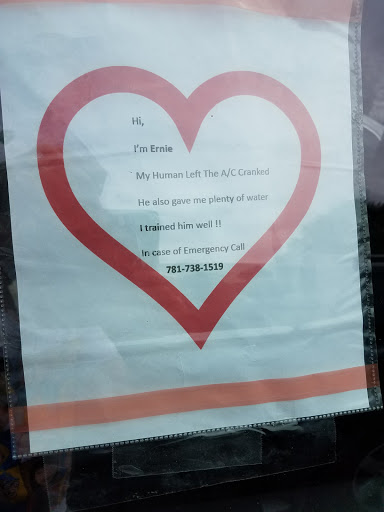 Hi,
I'm Ernie
My Human Left The A/C Cranked
He also gave me plenty of water
I trained him well !!
In case of Emergency Call
781-738-1519